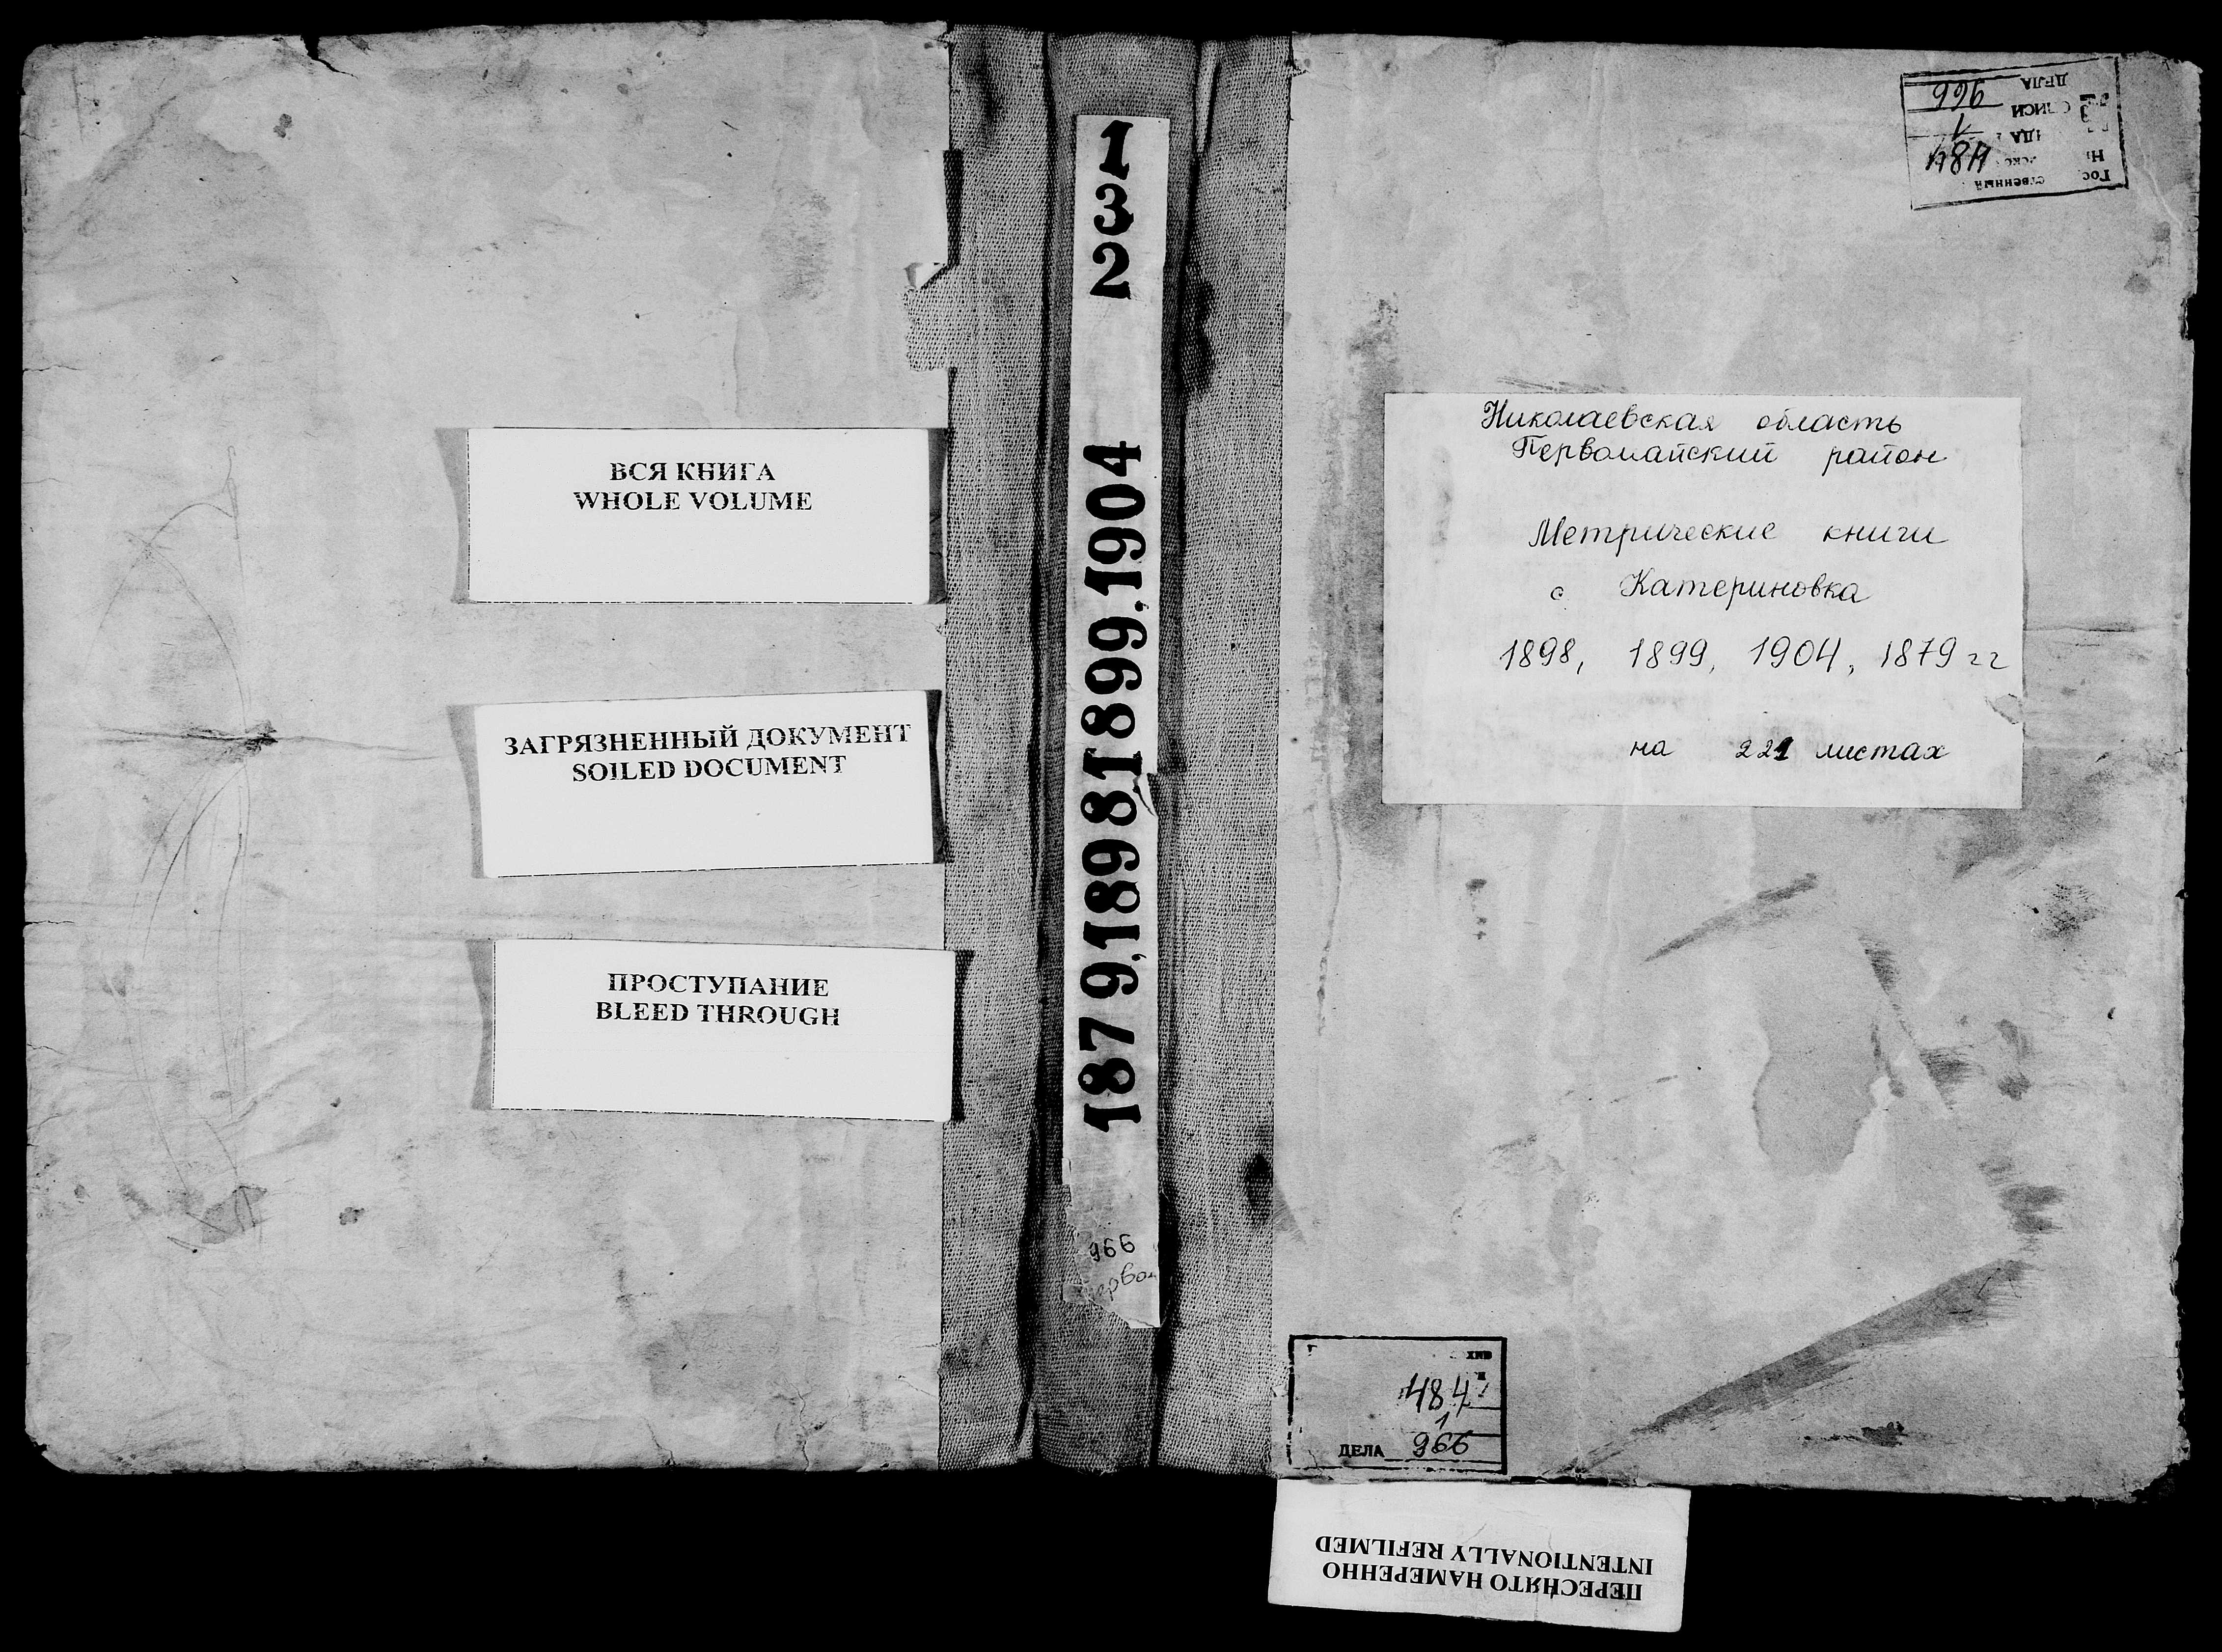 ВСЯ КНИГА
WHOLE VOLUME
ЗАГРЯЗНЕННЫЙ ДОКУМЕНТ
SOILED DOCUMENT
ПРОСТУПАНИЕ
BLEED THROUGH
132
1879,1898,1899,1904
966
Николаевская область
Первомайский район
Метрические книги
с. Катериновка
1898, 1899, 1904, 1879 гг
на 221 листах
484
1
ДЕЛА 966
484
1
ДЕЛА 966
ПЕРЕСНЯТО НАМЕРЕННО
INTENTIONALLY REFILMED